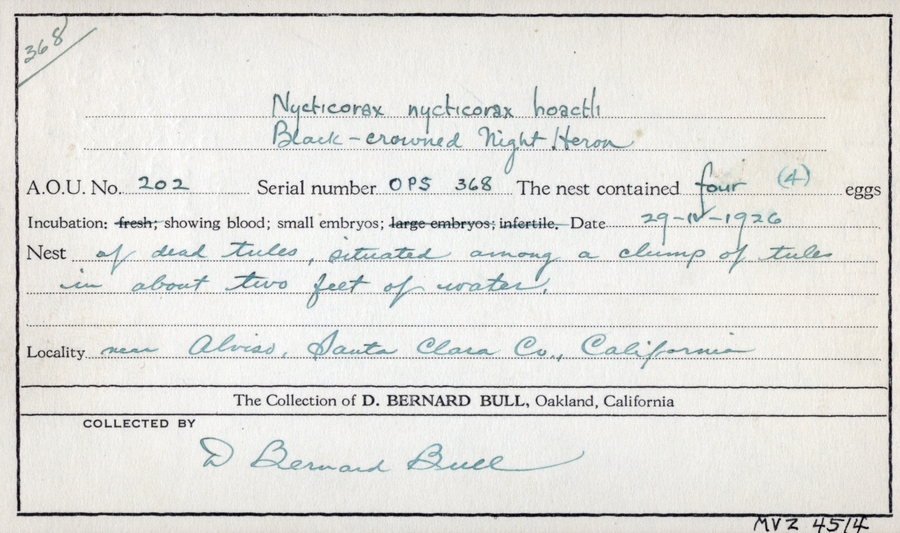 368
Nycticorax nycticorax hoactli
Black-crowned Night Heron
A.O.U. No. 202 Serial number OPS 368 The nest contained four (4) eggs
Incubation: fresh; showing blood; small embryos; large embryos; infertile. Date 29-IV-1926
Nest of dead tules, situated among a clump of tules
in about two feet of water.
Locality near Alviso, Santa Clara Co., California
The Collection of D. BERNARD BULL, Oakland, California
COLLECTED BY
D Bernard Bull
MVZ 4514